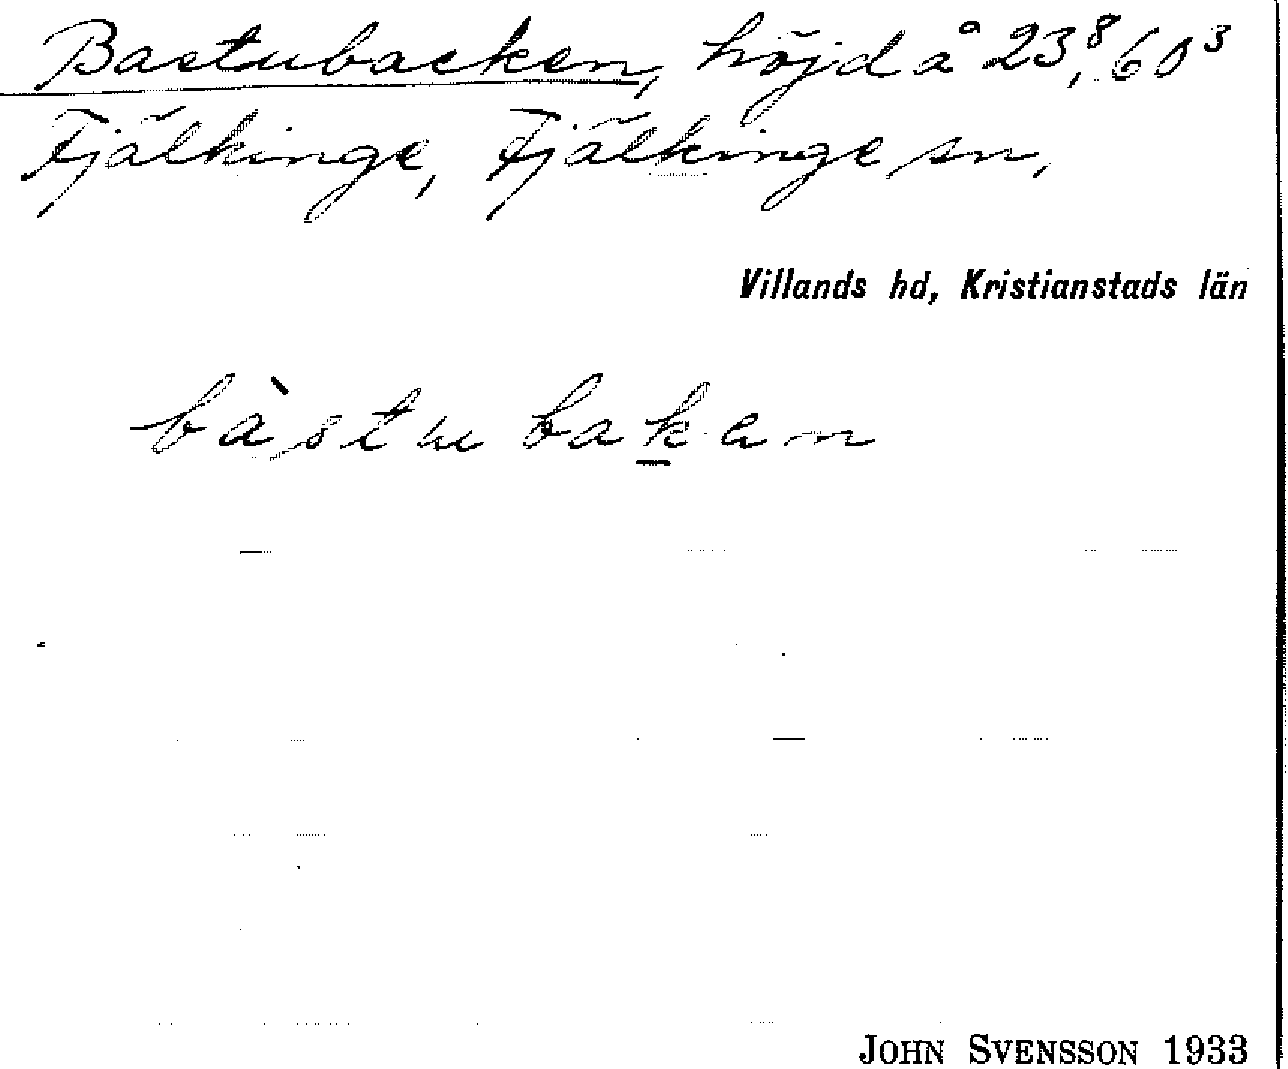 Bastubacken, höjd å 23,⁸ 60³
Fjälkinge, Fjälkinge sn,
Villands hd, Kristianstads län
bàstubaḵen
JOHN SVENSSON 1933